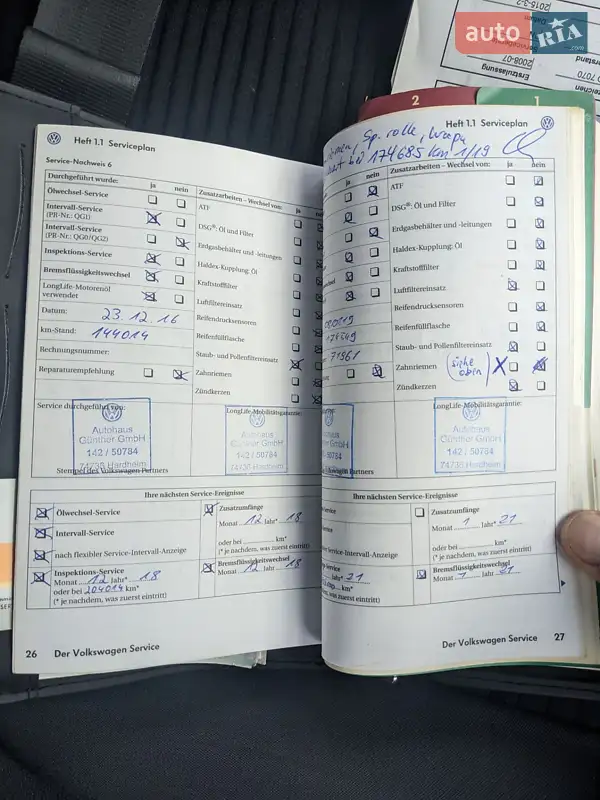 auto RIA
2008-07
Erstzulassung
2
1
Heft 1.1 Serviceplan
Service-Nachweis 6
Durchgeführt wurde:
ja
nein
Zusatzarbeiten – Wechsel von:
ja
Ölwechsel-Service
ATF
Intervall-Service
(PR-Nr.: QG1)
DSG®: Öl und Filter
Intervall-Service
(PR-Nr.: QG0/QG2)
Erdgasbehälter und -leitungen
Inspektions-Service
Haldex-Kupplung: Öl
Bremsflüssigkeitswechsel
Kraftstofffilter
LongLife-Motorenöl
verwendet
Luftfiltereinsatz
Datum: 23.12.16
Reifendrucksensoren
km-Stand: 144014
Reifenfüllflasche
Rechnungsnummer:
Staub- und Pollenfiltereinsatz
Reparaturempfehlung
Zahnriemen
Zündkerzen
Service durchgeführt von:
LongLife-Mobilitätsgarantie:
Autohaus
Günther GmbH
142 / 50784
74736 Hardheim
Stempel des Volkswagen Partners
Autohaus
Günther GmbH
142 / 50784
74736 Hardheim
Ihre nächsten Service-Ereignisse
Ölwechsel-Service
Zusatzumfänge
Monat 12 Jahr* 18
Intervall-Service
oder bei km*
(* je nachdem, was zuerst eintritt)
nach flexibler Service-Intervall-Anzeige
Inspektions-Service
Monat 12 Jahr* 18
oder bei 204014 km*
(* je nachdem, was zuerst eintritt)
Bremsflüssigkeitswechsel
Monat 12 Jahr 18
26 Der Volkswagen Service
Heft 1.1 Serviceplan
Sp. rolle,
bei 174685 km 1/19
nein
Zusatzarbeiten – Wechsel von:
ja
nein
ATF
DSG®: Öl und Filter
Erdgasbehälter und -leitungen
Haldex-Kupplung: Öl
Kraftstofffilter
Luftfiltereinsatz
Reifendrucksensoren
Reifenfüllflasche
Staub- und Pollenfiltereinsatz
71961
Zahnriemen (siehe oben) X
Zündkerzen
LongLife-Mobilitätsgarantie:
Autohaus
Günther GmbH
142 / 50784
74736 Hardheim
Ihre nächsten Service-Ereignisse
Zusatzumfänge
Monat 1 Jahr* 21
oder bei km*
(* je nachdem, was zuerst eintritt)
Service-Intervall-Anzeige
Bremsflüssigkeitswechsel
Monat 1 Jahr 21
(* je nachdem, was zuerst eintritt)
Der Volkswagen Service 27